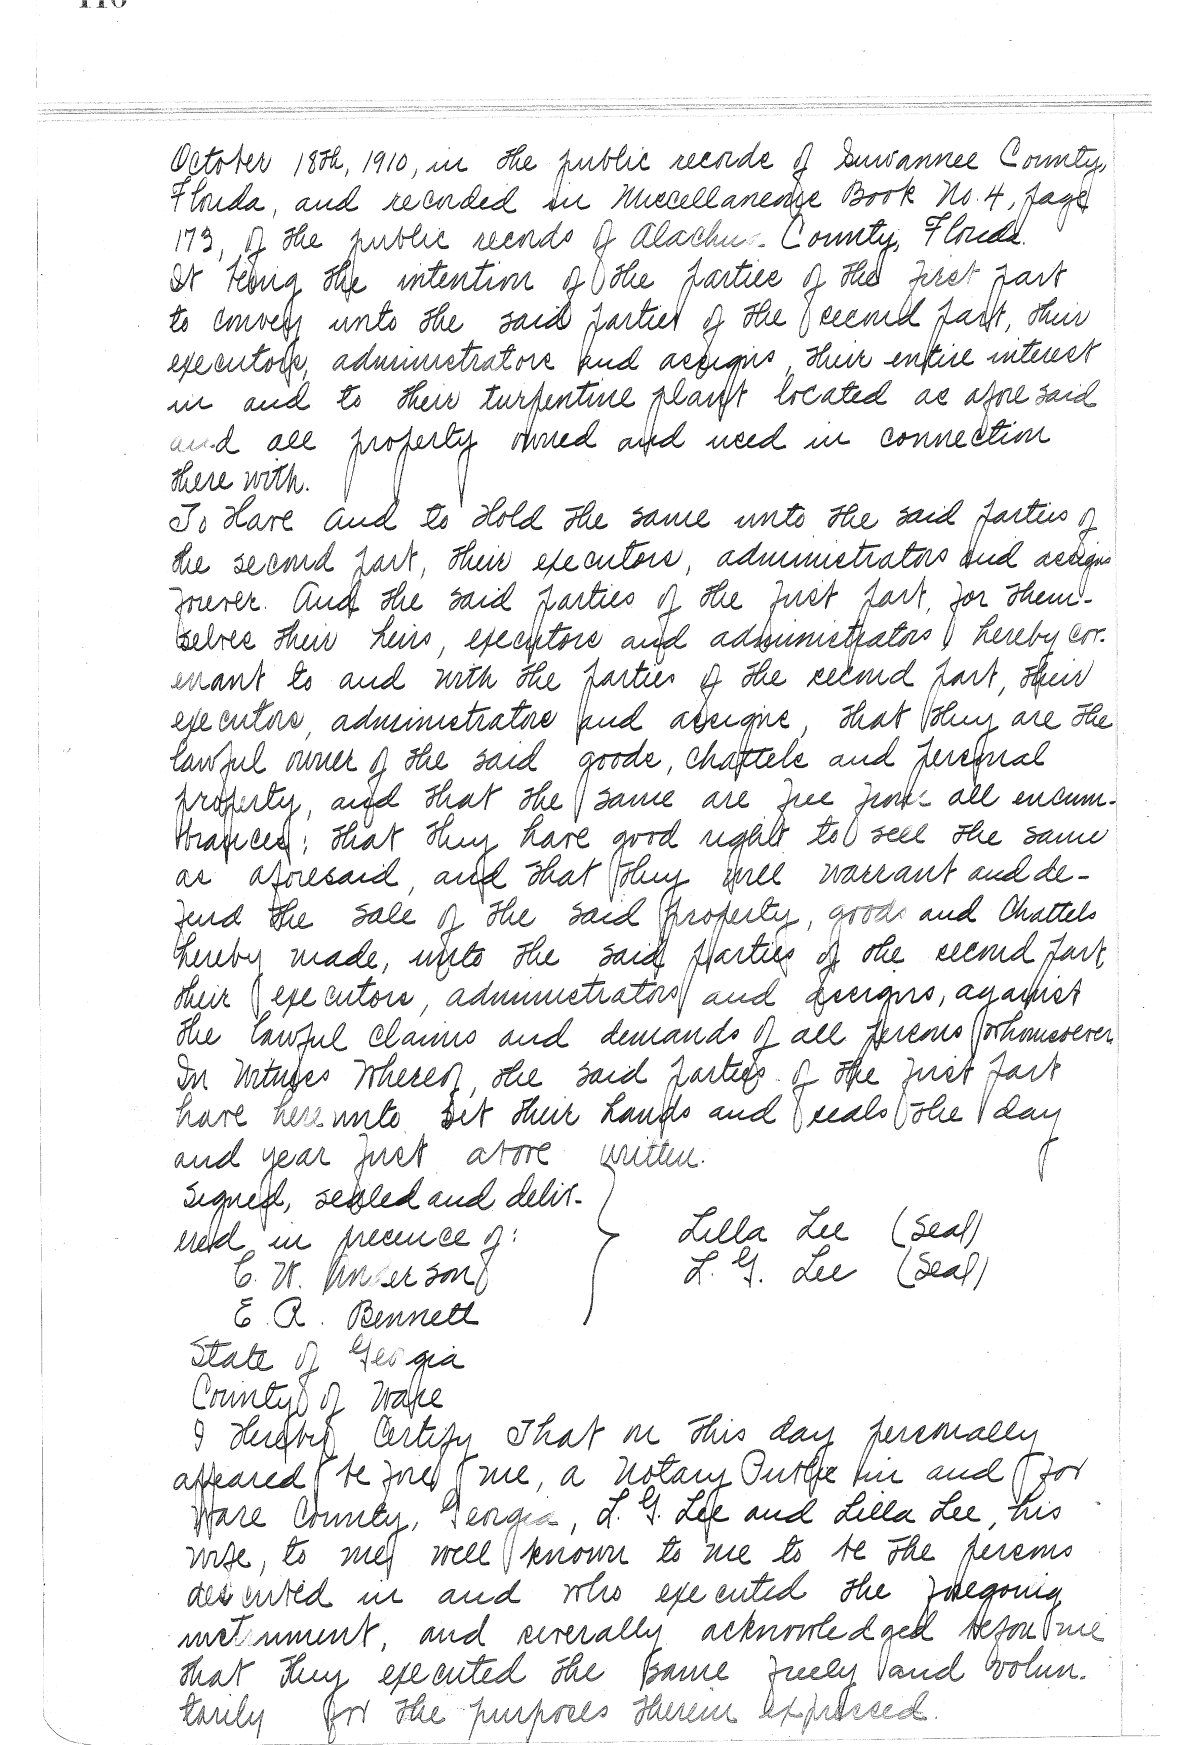 October 18th, 1910, in the public records of Suwannee County,
Florida, and recorded in Miscellaneous Book No. 4, page
173, of the public records of Alachua County, Florida.
It being the intention of the parties of the first part
to convey unto the said parties of the second part, their
executors, administrators and assigns, their entire interest
in and to their turpentine plant located as afore said
and all property owned and used in connection
there with.
To Have and to Hold the same unto the said parties of
the second part, their executors, administrators and assigns
forever. And the said parties of the first part, for them-
selves their heirs, executors and administrators, hereby cov-
enant to and with the parties of the second part, their
executors, administrators and assigns, that they are the
lawful owner of the said goods, chattels and personal
property, and that the same are free from all encum-
brances; that they have good right to sell the same
as aforesaid, and that they will warrant and de-
fend the sale of the said property, goods and Chattels
hereby made, unto the said parties of the second part
their executors, administrators and assigns, against
the lawful claims and demands of all persons whomsoever.
In Witness Whereof, the said parties of the first part
have here unto set their hands and seals the day
and year first above written.
Signed, sealed and deliv-
ered in presence of:
Lilla Lee (Seal)
C. W. Anderson
L. G. Lee (Seal)
E. A. Bennett
State of Georgia
County of Ware
I Hereby Certify That on this day personally
appeared before me, a Notary Public in and for
Ware County, Georgia, L. G. Lee and Lilla Lee, his
wife, to me well known to me to be the persons
described in and who executed the foregoing
instrument, and severally acknowledged before me
that they executed the same freely and volun-
tarily for the purposes therein expressed.